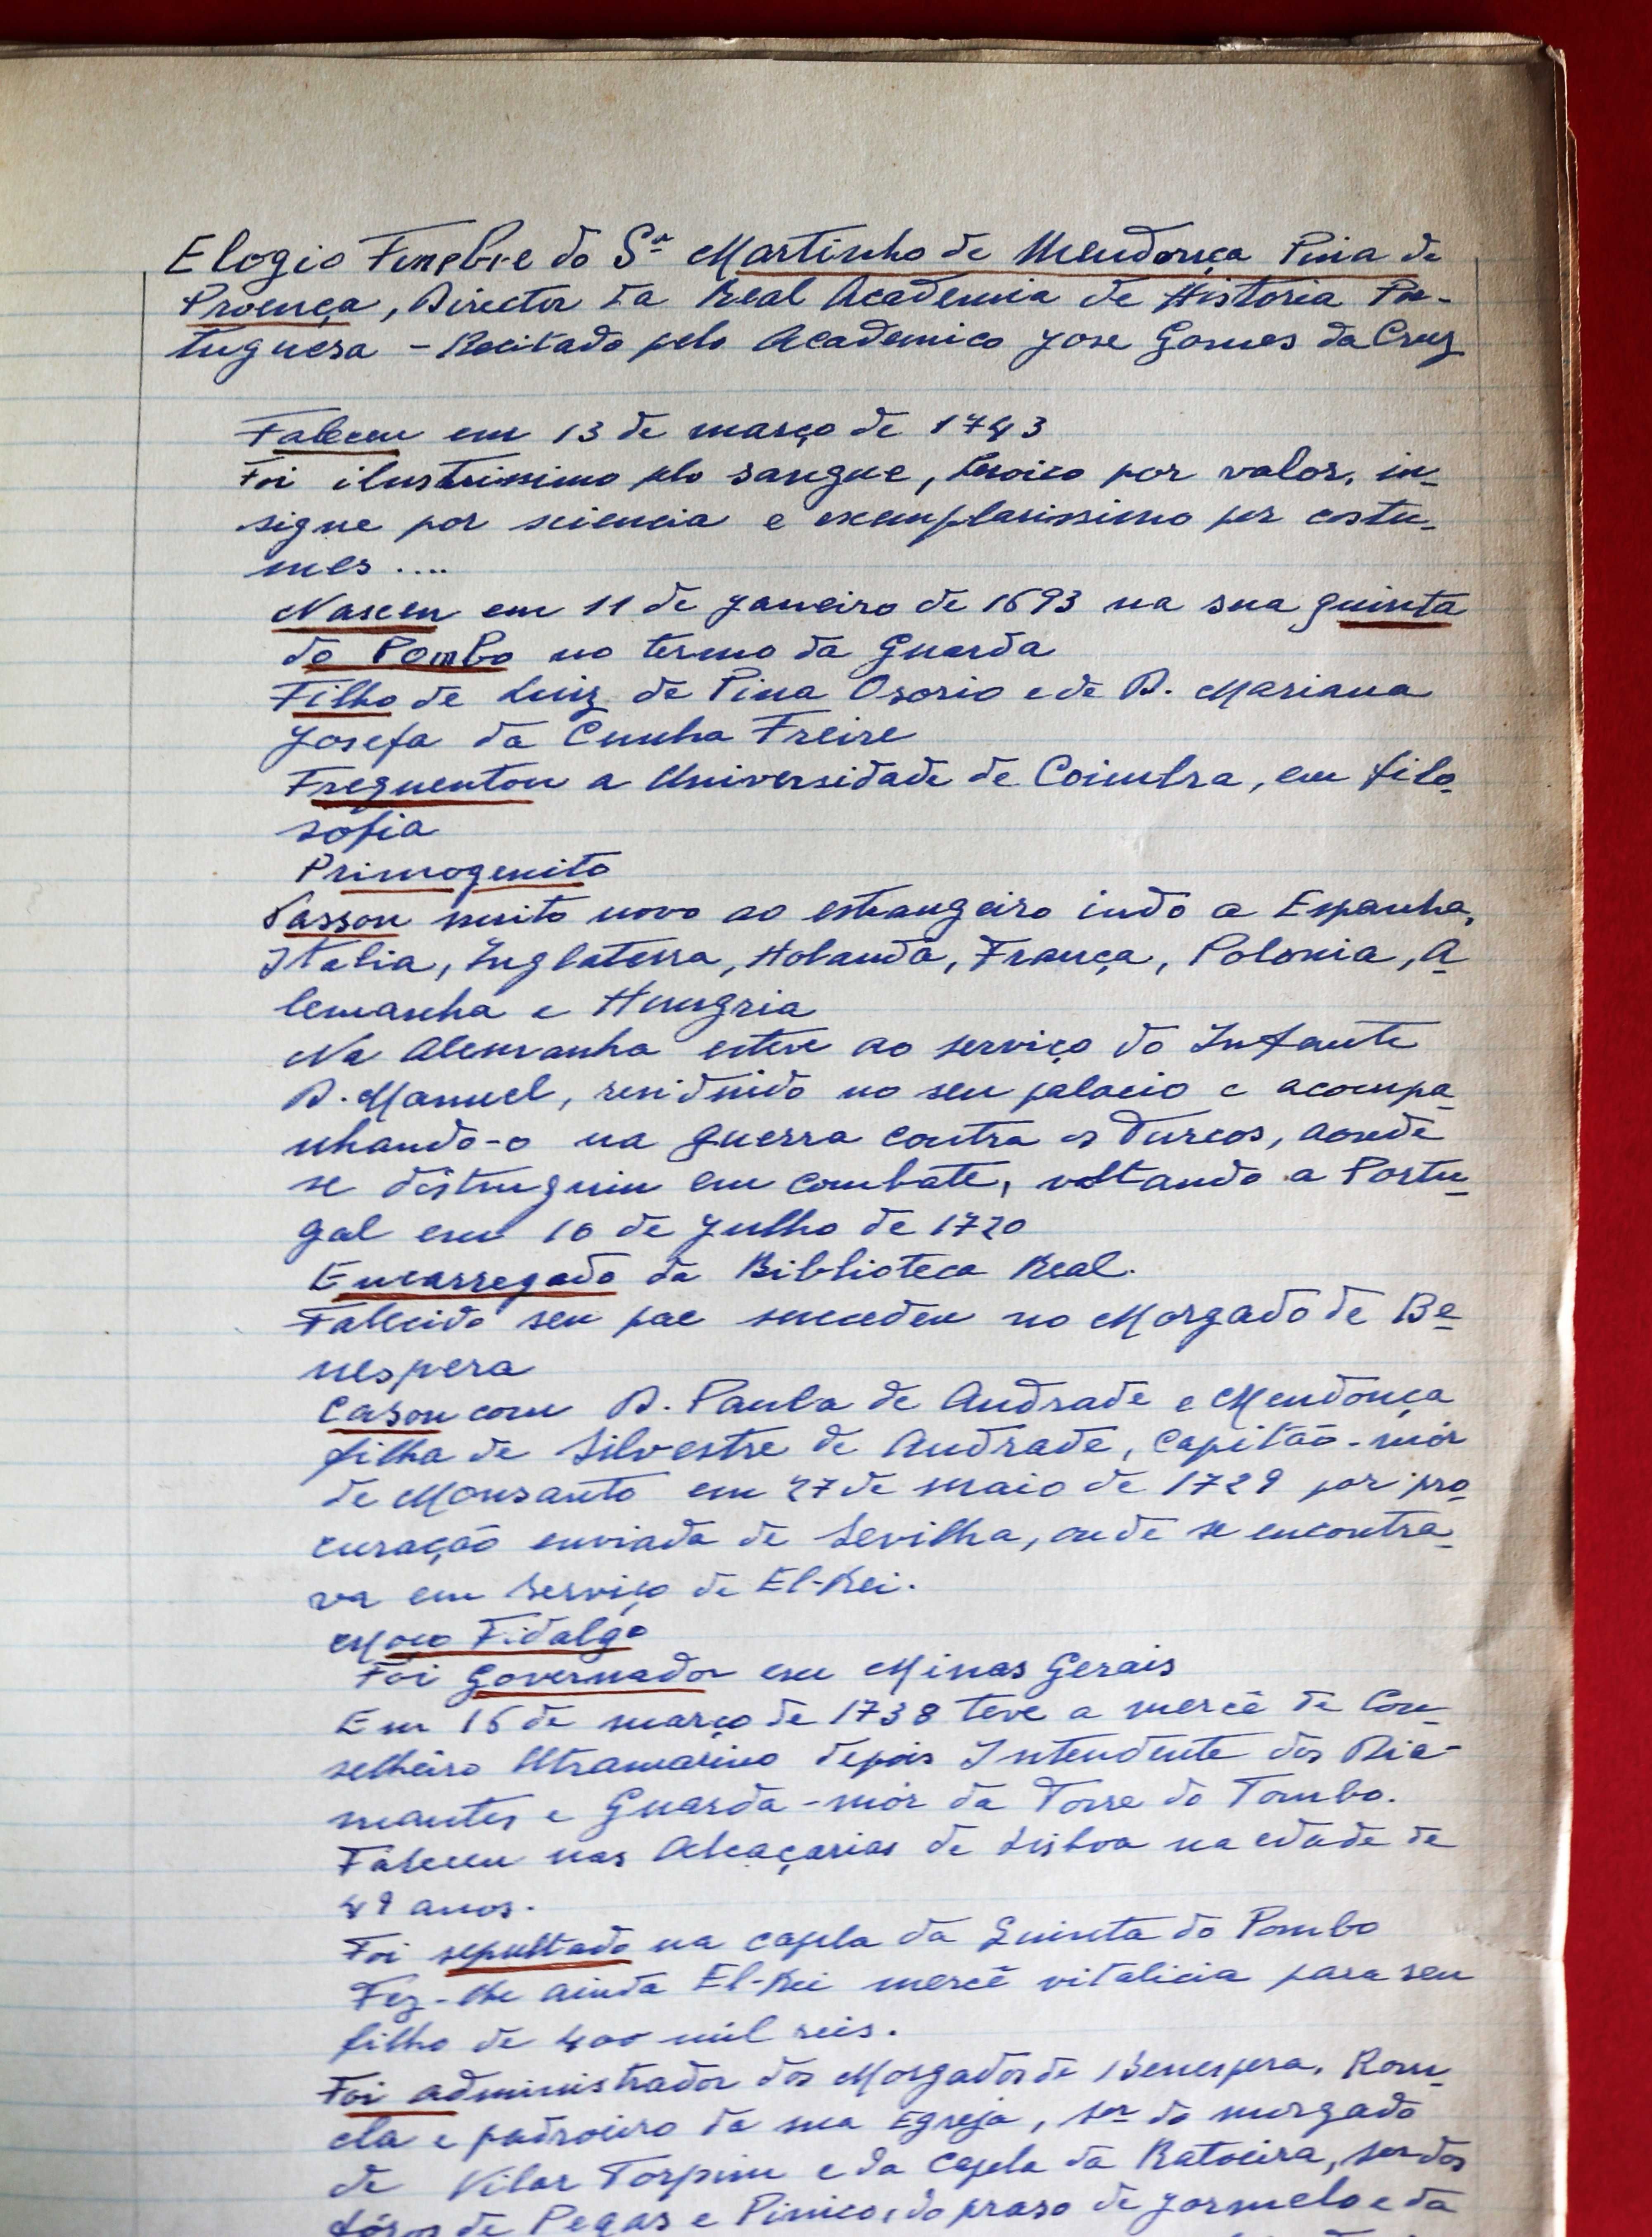 Elogio Funebre do Sr. Martinho de Mendonça Pina de
Proença, Director da Real Academia de Historia Por-
tuguesa - Recitado pelo Academico Jose Gomes da Cruz
Faleceu em 13 de março de 1743
Foi ilustrissimo pelo sangue, heroico por valor, in-
signe por sciencia e exemplarissimo por costu-
mes ....
Nasceu em 11 de Janeiro de 1693 na sua quinta
do Pombo no termo da Guarda
Filho de Luiz de Pina Osorio e de D. Mariana
Josefa da Cunha Freire
Frequentou a Universidade de Coimbra, em filo-
sofia
Primogenito
Passou muito novo ao estrangeiro indo a Espanha,
Italia, Inglaterra, Holanda, França, Polonia, A-
lemanha e Hungria
Na Alemanha esteve ao serviço do Infante
D. Manuel, residindo no seu palacio e acompa-
nhando-o na guerra contra os Turcos, aonde
se distinguiu em combate, voltando a Portu-
gal em 10 de Julho de 1720
Encarregado da Biblioteca Real.
Falecido seu pae sucedeu no Morgado de Be-
nespera
Casou com D. Paula de Andrade e Mendonça
filha de Silvestre de Andrade, Capitão-mór
de Monsanto em 27 de maio de 1729 por pro-
curação enviada de Sevilha, onde se encontra-
va em serviço de El-Rei.
Moço Fidalgo
Foi Governador em Minas Gerais
Em 15 de março de 1738 teve a mercê de Con-
selheiro Ultramarino depois Intendente dos Dia-
mantes e Guarda-mór da Torre do Tombo.
Faleceu nas Alcaçarias de Lisboa na edade de
49 anos.
Foi sepultado na capela da Quinta do Pombo
Fez-lhe ainda El-Rei mercê vitalicia para seu
filho de 400 mil reis.
Foi administrador dos Morgados de Benespera,
e padroeiro da sua Egreja, sor do morgado
de Vilar Torpim e da Capela da Ratoeira, sor dos
fóros de Pegas e do praso de Jormelo e da